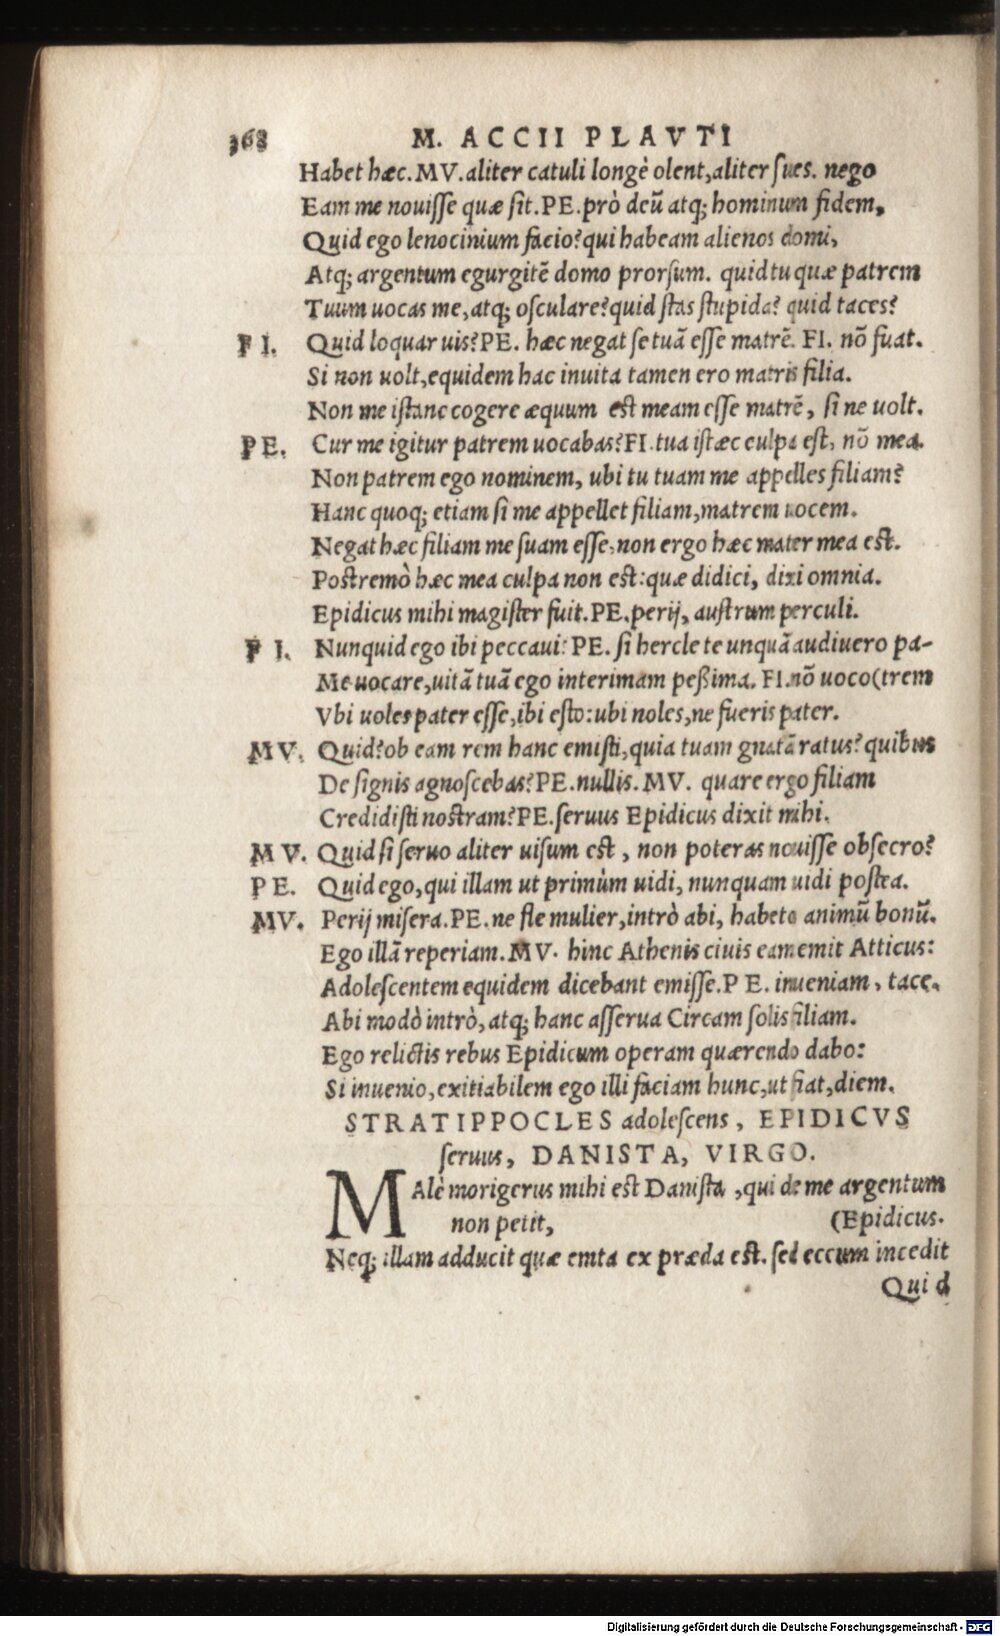 368 M. ACCII PLAVTI
Habet hæc. MV. aliter catuli longè olent, aliter sues. nego
Eam me nouisse quæ sit. PE. prò deũ atq; hominum fidem,
Quid ego lenocinium facio? qui habeam alienos domi,
Atq; argentum egurgitẽ domo prorsum. quid tu quæ patrem
Tuum uocas me, atq; osculare? quid stas stupida? quid taces?
FI. Quid loquar uis? PE. hæc negat se tuã esse matrẽ. FI. nõ fuat.
Si non uolt, equidem hac inuita tamen ero matris filia.
Non me istanc cogere æquum est meam esse matrẽ, si ne uolt.
PE. Cur me igitur patrem uocabas? FI. tua istæc culpa est, nõ mea.
Non patrem ego nominem, ubi tu tuam me appelles filiam?
Hanc quoq; etiam si me appellet filiam, matrem uocem.
Negat hæc filiam me suam esse, non ergo hæc mater mea est.
Postremò hæc mea culpa non est: quæ didici, dixi omnia.
Epidicus mihi magister fuit. PE. perij, austrum perculi.
FI. Nunquid ego ibi peccaui? PE. si hercle te unquã audiuero pa-
Me uocare, uitã tuã ego interimam peßima. FI. nõ uoco (trem
Vbi uoles pater esse, ibi esto: ubi noles, ne fueris pater.
MV. Quid? ob eam rem hanc emisti, quia tuam gnatã ratus? quibus
De signis agnoscebas? PE. nullis. MV. quare ergo filiam
Credidisti nostram? PE. seruus Epidicus dixit mihi.
MV. Quid si seruo aliter uisum est, non poteras nouisse obsecro?
PE. Quid ego, qui illam ut primùm uidi, nunquam uidi postea.
MV. Perij misera. PE. ne fle mulier, intrò abi, habeto animũ bonũ.
Ego illã reperiam. MV. hinc Athenis ciuis eam emit Atticus:
Adolescentem equidem dicebant emisse. PE. inueniam, tace.
Abi modò intrò, atq; hanc asserua Circam solis filiam.
Ego relictis rebus Epidicum operam quærendo dabo:
Si inuenio, exitiabilem ego illi faciam hunc, ut fiat, diem.
STRATIPPOCLES adolescens, EPIDICVS
seruus, DANISTA, VIRGO.
MAlè morigerus mihi est Danista, qui de me argentum
non petit, (Epidicus.
Neq; illam adducit quæ emta ex præda est. sed eccum incedit
Quid
Digitalisierung gefördert durch die Deutsche Forschungsgemeinschaft - DFG